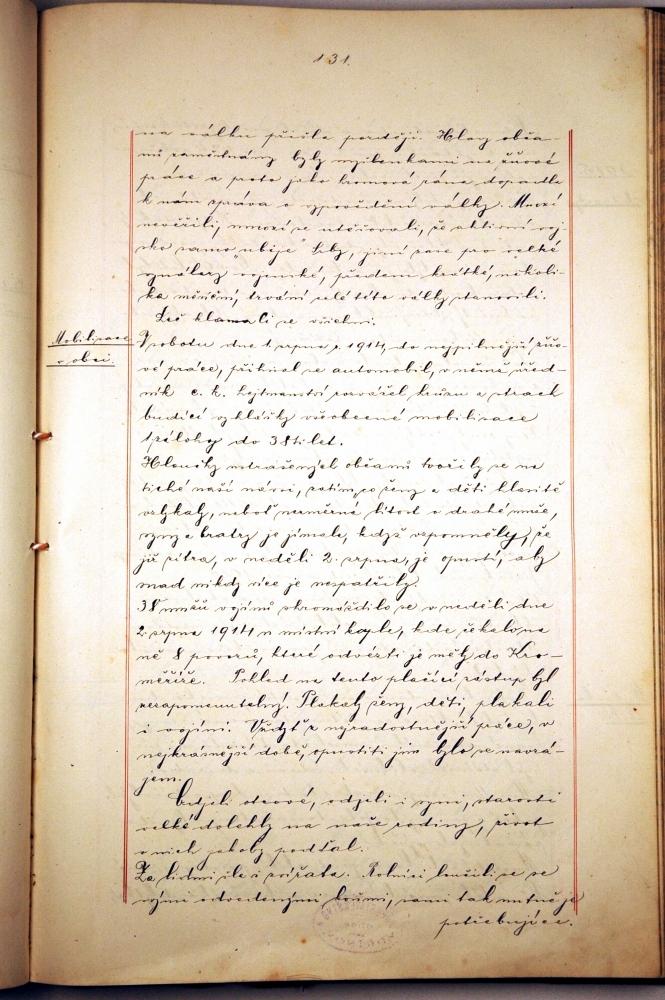 131.
na válku přišla později. Hlavy obča-
nů zaměstnány byly myšlenkami na žňové
práce a proto jako hromová rána dopadla
k nám zpráva o vypovědění války. Mnozí
nevěřili, mnozí se utěšovali, že aktivní voj-
sko samo "ubije" Srby, jiní zase pro velké
vynálezy vojenské, předem krátké, několi-
ka měsíční, trvání celé této války stanovili.
Leč klamali se všichni.
Mobilisace
v obci.
V sobotu dne 1. srpna 1914, do nejpilnější žňo-
vé práce, přihnal se automobil, v němž úřed-
ník c. k. hejtmanství rozvážel hrůzu a strach
budící vyhlášky všeobecné mobilisace
zálohy do 38ti let.
Hloučky ustrašených občanů tvořily se na
tiché naší návsi, zatím co ženy a děti hlasitě
vzlykaly, neboť nesměrná lítost o drahé muže,
syny a bratry je jímala, když vzpomněly, že
již zítra, v neděli 2. srpna, je opustí, aby
snad nikdy více je nespatřily.
38 mužů vojínů shromáždilo se v neděli dne
2. srpna 1914 u místní kaple, kde čekalo na
ně 8 povozů, které odvézti je měly do Kro-
měříže. Pohled na tento plačící zástup byl
nezapomenutelný. Plakaly ženy, děti, plakali
i vojíni. Vždyť z nejradostnější práce, v
nejkrásnější době, opustiti jim bylo se navzá-
jem.
Odjeli otcové, odjeli i syni, starosti
velké dolehly na naše rodiny, život
v nich jakoby podťal.
Za lidmi šla i zvířata. Rolníci loučili se se
svými odvedenými koňmi, sami tak nutně je
potřebujíce.